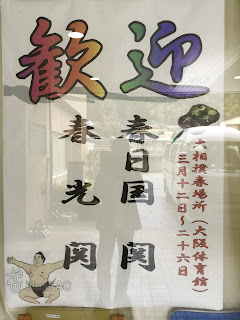 歓迎
大相撲春場所（大阪体育館）
三月十二日～二十六日
春日国関
春光関